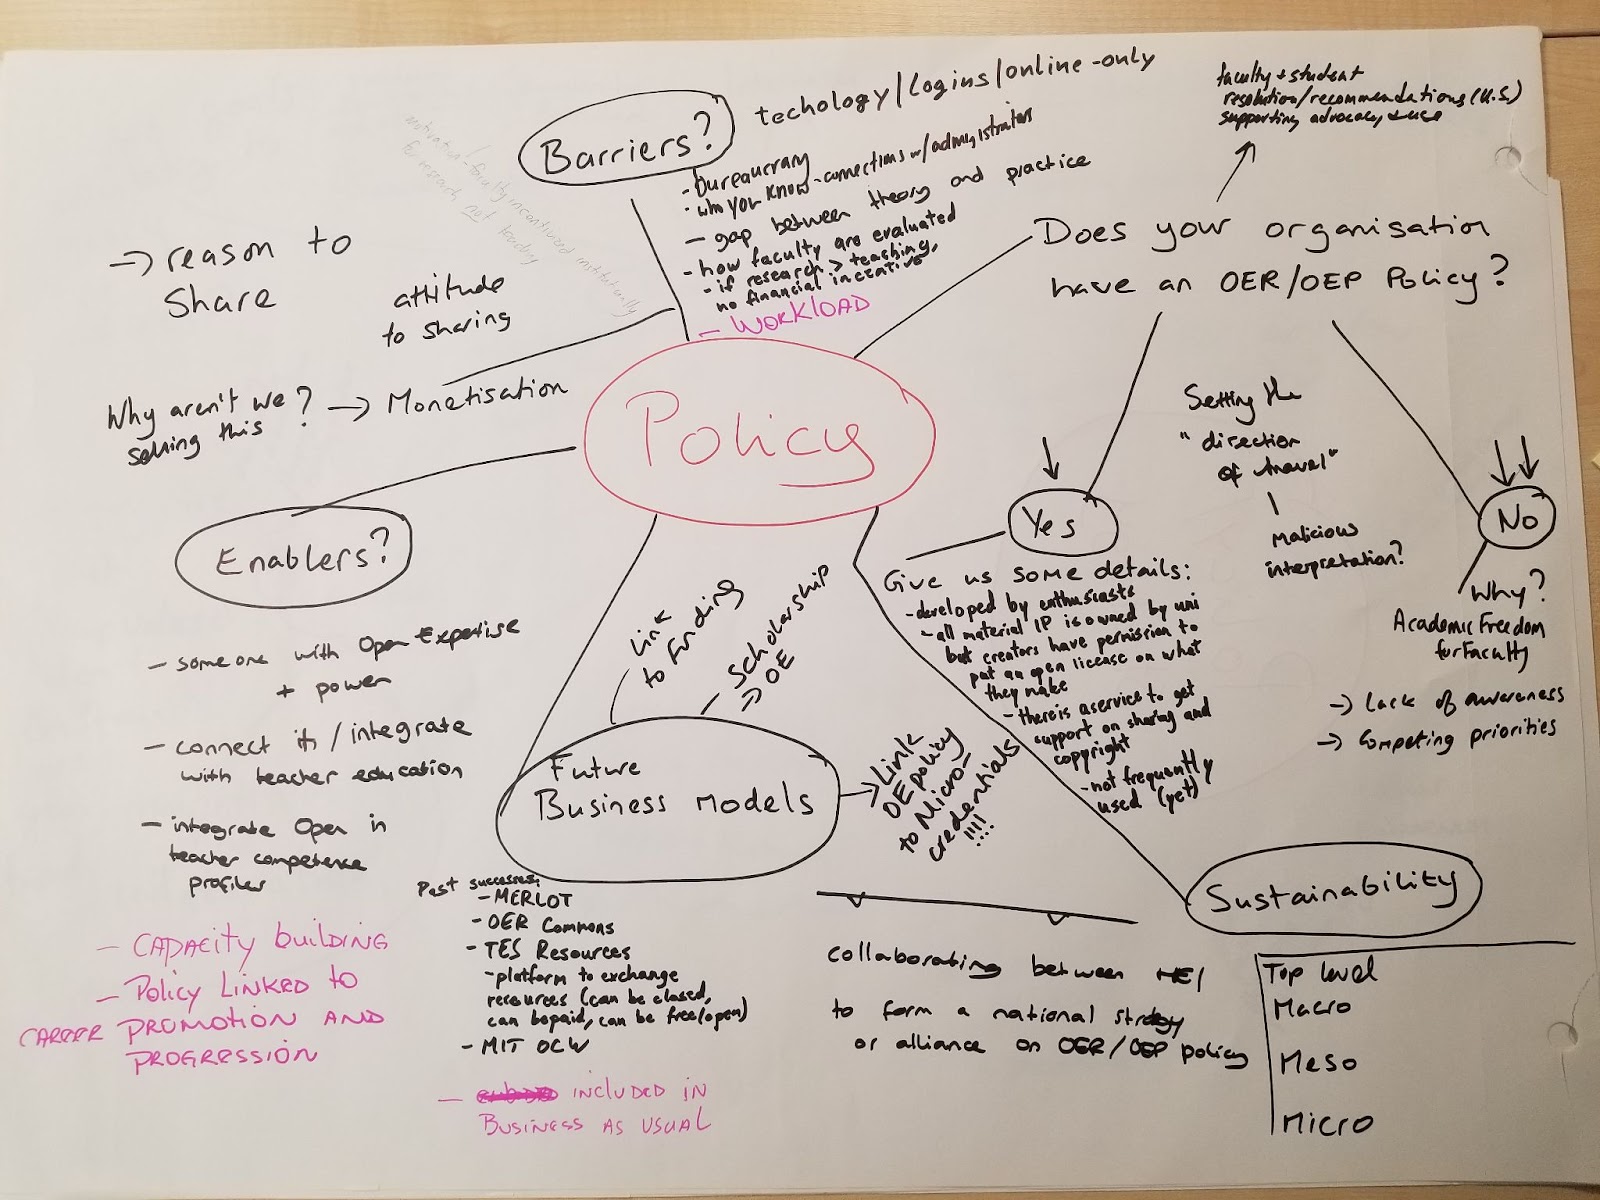 Barriers?
techology/logins/online-only
- bureaucracy
- who you know - connections w/ administrators
- gap between theory and practice
- how faculty are evaluated
- if research > teaching,
no financial incentive
- WORKLOAD
motivation - faculty incentivized institutionally
for research not teaching
→ reason to
share
attitude
to sharing
Why aren't we
selling this ?
→ Monetisation
Policy
faculty + student
resolution/recommendations (U.S.)
supporting advocacy + use
Does your organisation
have an OER/OEP Policy?
Setting the
"direction
of travel"
malicious
interpretation?
Yes
Give us some details:
- developed by enthusiasts
- all material IP is owned by uni
but creators have permission to
put an open license on what
they make
- there is a service to get
support on sharing and
copyright
- not frequently
used (yet)
No
Why?
Academic Freedom
for Faculty
→ Lack of awareness
→ Competing priorities
Enablers?
- someone with Open Expertise
+ power
- connect / integrate
with teacher education
- integrate Open in
teacher competence
profiles
- CAPACITY BUILDING
- POLICY LINKED TO
CAREER PROMOTION AND
PROGRESSION
Link
to funding
Scholarship
→ OE
Future
Business models
→ Link
OE policy
to Micro-
credentials
!!!!
Past successes:
- MERLOT
- OER Commons
- TES Resources
- platform to exchange
resources (can be closed,
can be paid, can be free/open)
- MIT OCW
- INCLUDED IN
BUSINESS AS USUAL
Sustainability
collaborating between HEI
to form a national
or alliance on OER/OEP policy
Top level
Macro
Meso
Micro